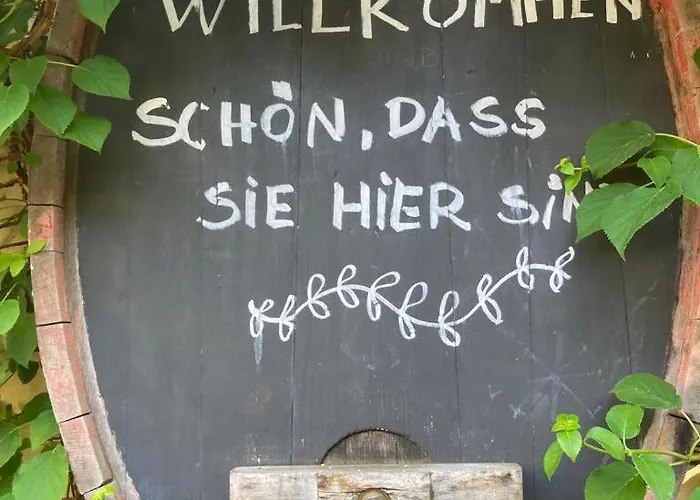 WILLKOMMEN
SCHÖN, DASS
SIE HIER SIN